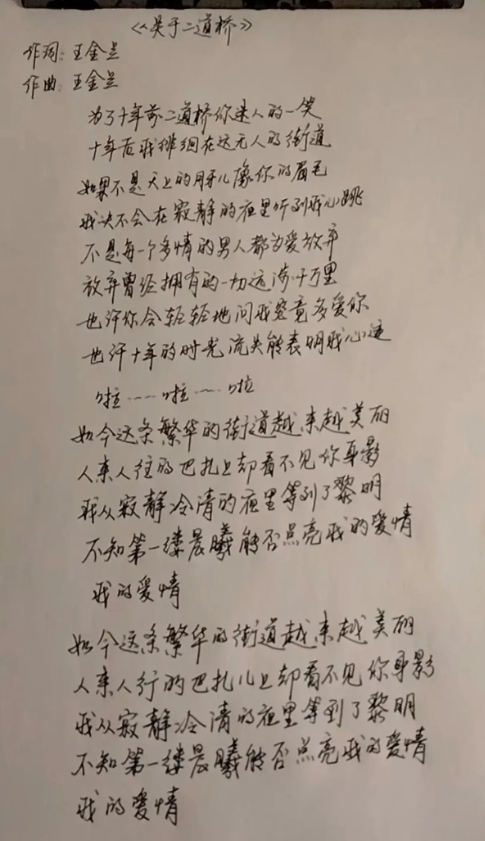 《关于二道桥》
作词：王金兰
作曲：王金兰
为了十年前二道桥你迷人的一笑
十年后我徘徊在这无人的街道
如果不是天上的月牙儿像你的眉毛
我决不会在寂静的夜里听到我心跳
不是每一个多情的男人都为爱放弃
放弃曾经拥有的一切远涉千万里
也许你会轻轻地问我究竟多爱你
也许十年的时光流失能表明我心迹
啦……啦……啦
如今这条繁华的街道越来越美丽
人来人往的巴扎上却看不见你身影
我从寂静冷清的夜里等到了黎明
不知第一缕晨曦能否点亮我的爱情
我的爱情
如今这条繁华的街道越来越美丽
人来人行的巴扎儿上却看不见你身影
我从寂静冷清的夜里等到了黎明
不知第一缕晨曦能否点亮我的爱情
我的爱情